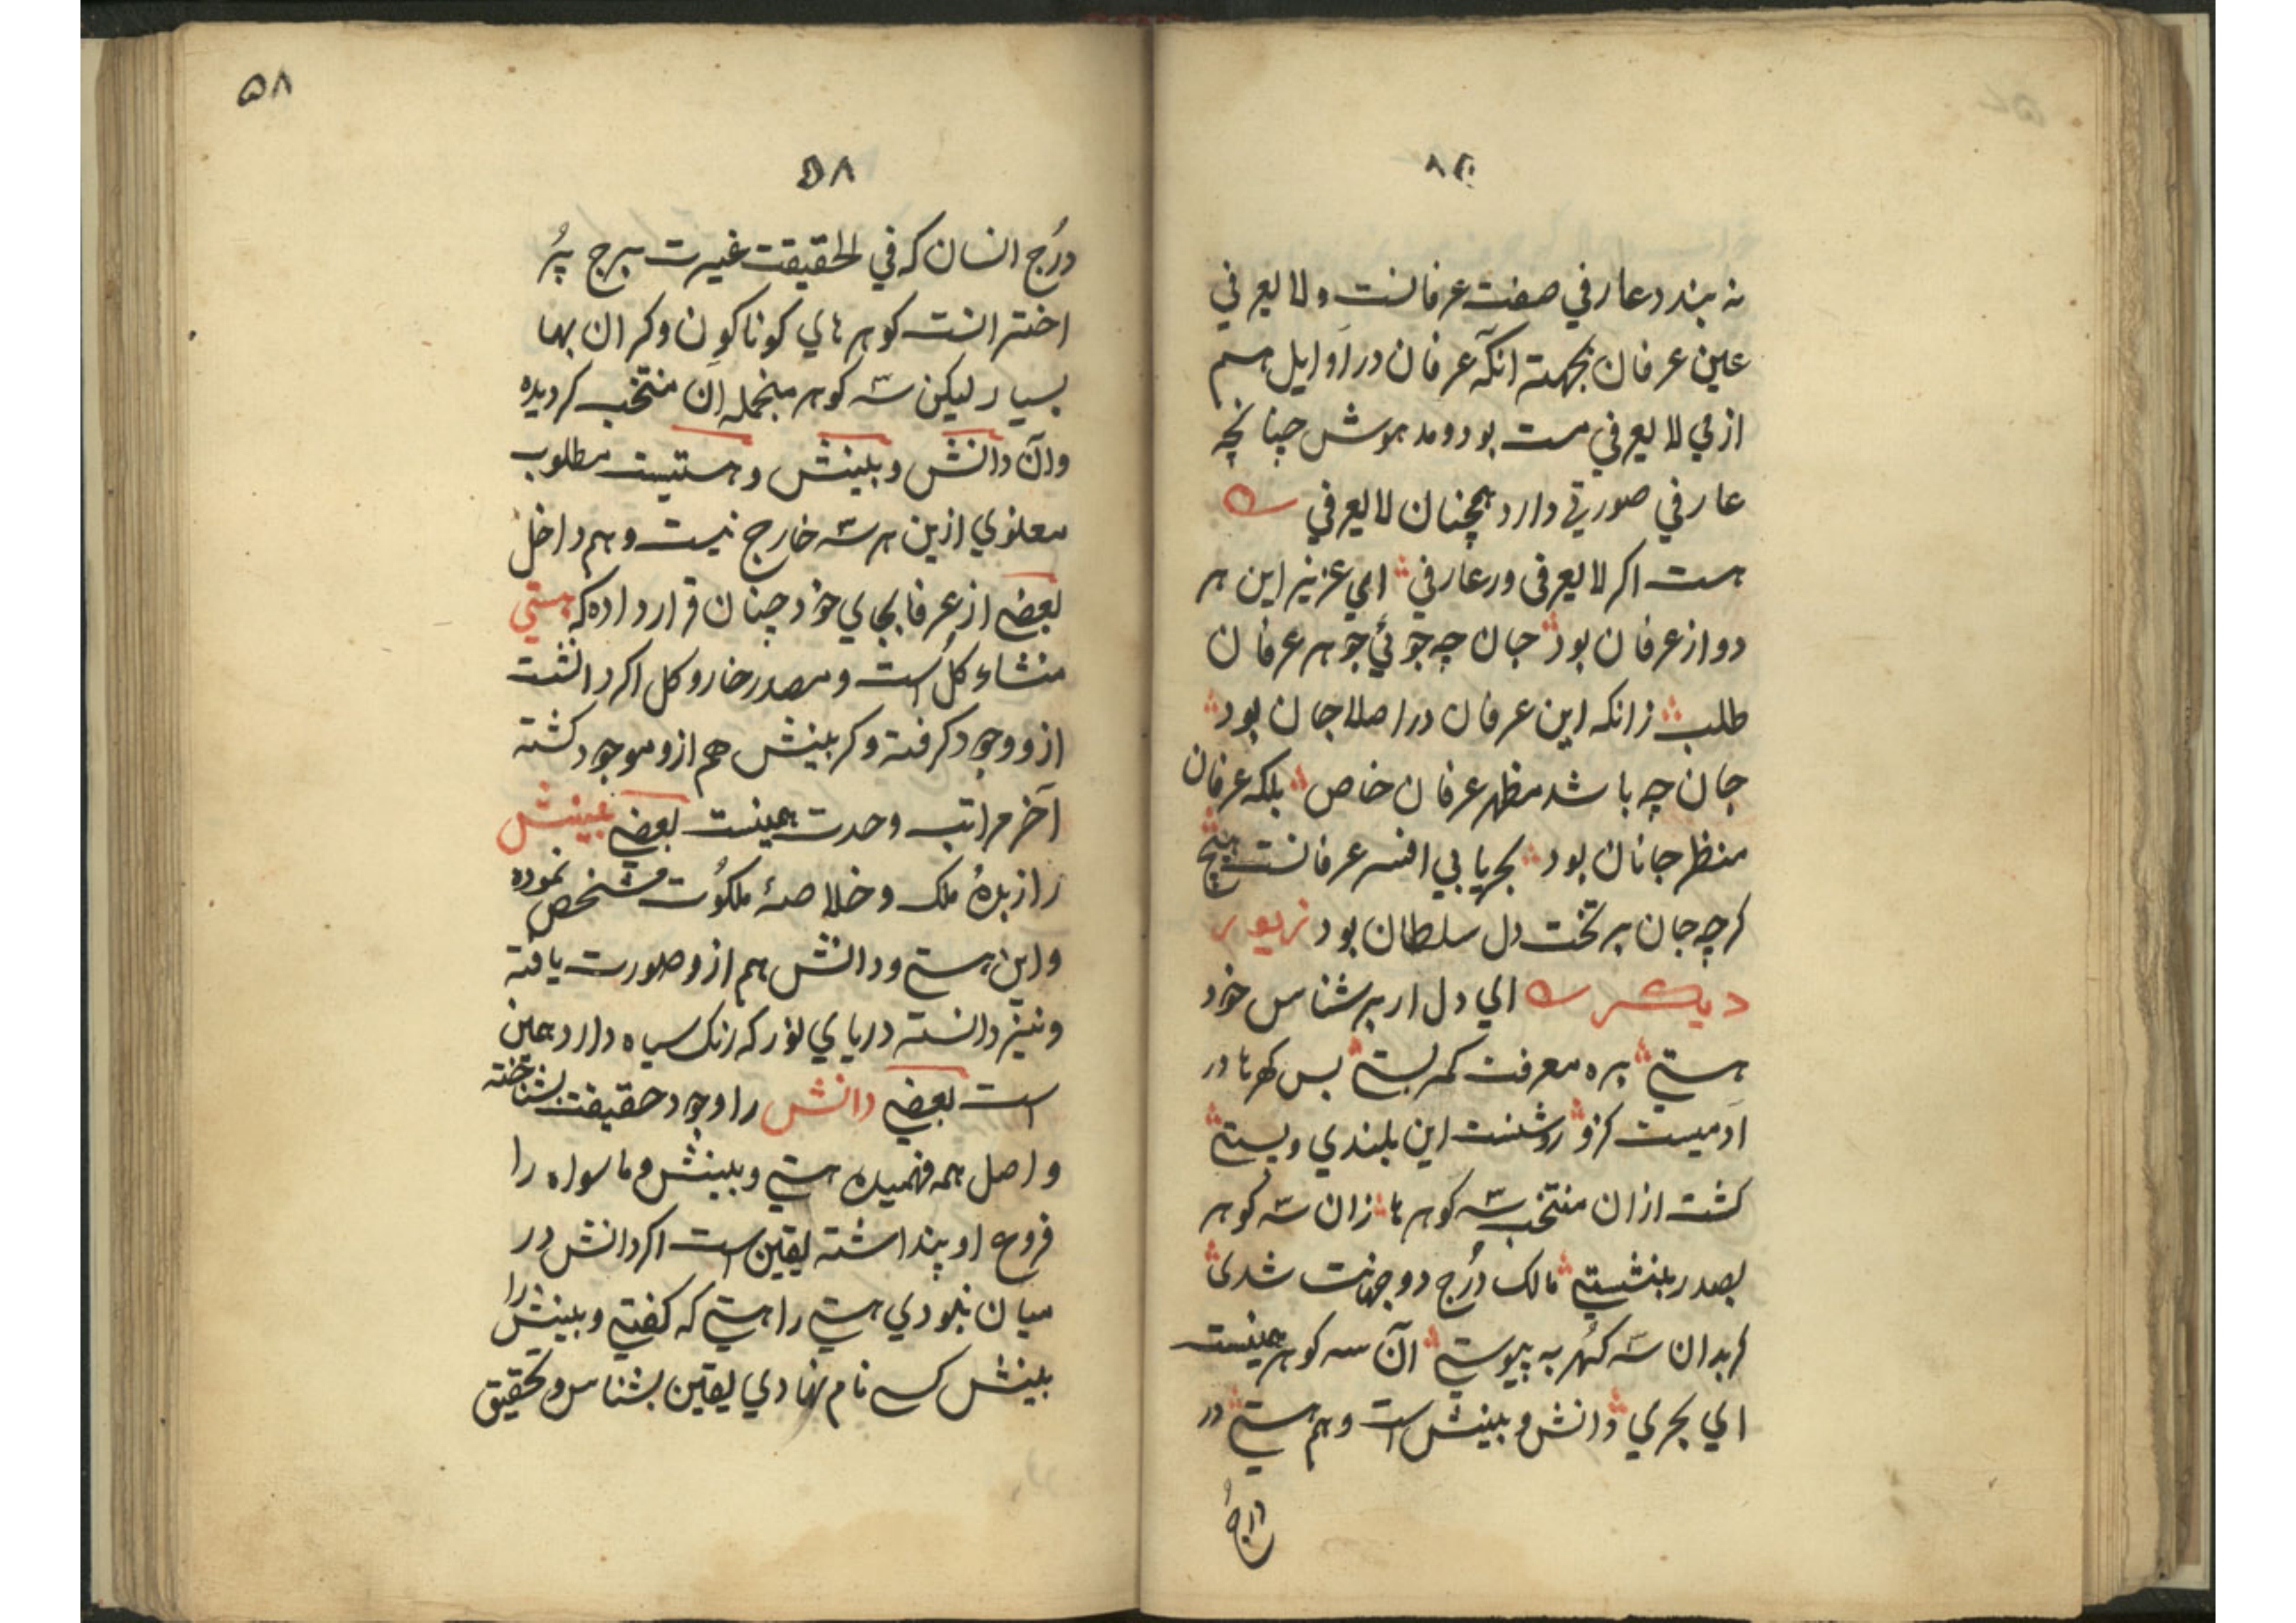 نه بندد عارفی صفت عرفانست و لایعرفی
عین عرفان بجهته آنکه عرفان در اوایل هم
از می لایعرفی مست بود و مدهوش چنانچه
عارفی صورتی دارد همچنان لایعرفی
هست اکر لایعرفی ور عارفی ای عزیز این هر
دو از عرفان بود جان چه جوئی جوهر عرفان
طلب زانکه این عرفان در اصلا جان بود
جان چه باشد مظهر عرفان خاص بلکه عرفان
منظر جانان بود بحریا بی افسر عرفانست هیچ
کرچه جان بر تخت دل سلطان بود زیور
دیکر ای دل ار بر شناس خود
هستی بره معرفت کمر بستی بس کهرها در
آدمیست کزو روشنست این بلندی و پستی
کشت ازان منتخب سه کوهرها زان سه کوهر
بصدر بنشستی مالک درج دو جهانت شدی
کر بدان سه کهر به پیوستی آن سه کوهر همینست
ای بحری دانش و بینش است و هم هستی در
درج
۵۸
۵۸
درج انسان که فی الحقیقت غیرت برج پر
اخترانست کوهرهای کوناکون و کران بها
بسیار لیکن سه کوهر منجمله آن منتخب کردیده
و آن دانش و بینش و هستیست مطلوب
معنوی ازین هر سه خارج نیست و هم داخل
بعضی از عرفا بجای خود چنان قرار داده که هستی
منشاء کل است و مصدر خار و کل اکر دانشست
ازو وجود کرفته و کر بینش هم ازو موجود کشته
آخر مراتب وحدت همینست بعضی بینش
را زبدهٔ ملک و خلاصهٔ ملکوت مشخص نموده
و این هستی و دانش هم ازو صورت یافته
و نیز دانسته دریای نور که رنک سیاه دارد همین
است بعضی دانش را وجود حقیقت بشناخته
و اصل همه فهمیده هستی و بینش و ماسواه را
فروع او پنداشته یقین است اکر دانش در
میان نبودی هستی را هستی که کفتی و بینش را
بینش کسی نام نهادی یقین بشناس و تحقیق